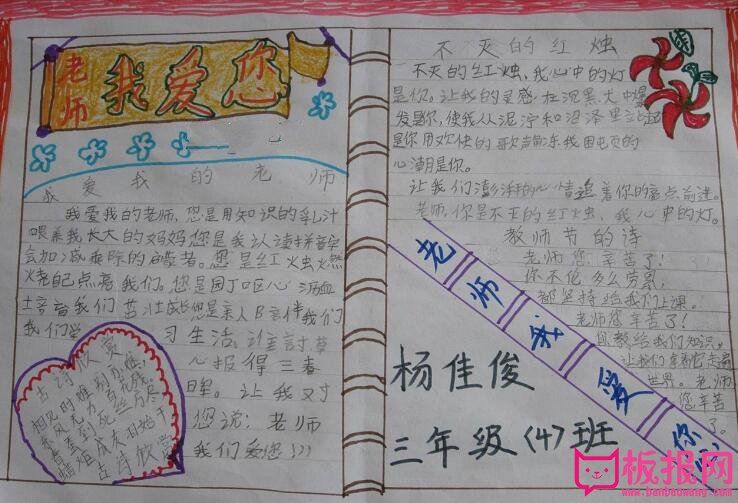 老师
我爱您
我爱我的老师
我爱我的老师,您是用知识的乳汁
喂养我长大的妈妈您是我认读拼音学
会加减乘除的启蒙者。您是红火虫燃
烧自己点亮我们。您是园丁呕心沥血
培育我们茁壮成您是亲人日音伴我们
我们学习生活,谁讨草
心报得三春
晖。让我对
您说:老师
我们爱您!))
古诗欣赏
相见时难别亦难,
东风无力百花残。
春蚕到死丝方尽
古诗欣赏
不灭的红烛
不灭的红烛,我心中的灯
是你。让我的灵感在沉黑大中爆
发是你,使我从泥泞和沼泽里
是你用欢快的歌
心潮是你。
让我们澎湃的心情追着你的亮点前进。
老师,你是不灭的红烛,我心中的灯。
教师节的诗
老师您辛苦了!
你不伦多么劳累,
都坚持给我们上课。
老师您辛苦了!
教给我们知识,
让我们
走遍
世界。老师
您辛苦
了。
老师我爱你
杨佳俊
三年级〈4〉班
板报网
www.banbaowang.com